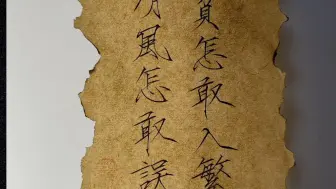 怎敢入繁
風怎敢誤